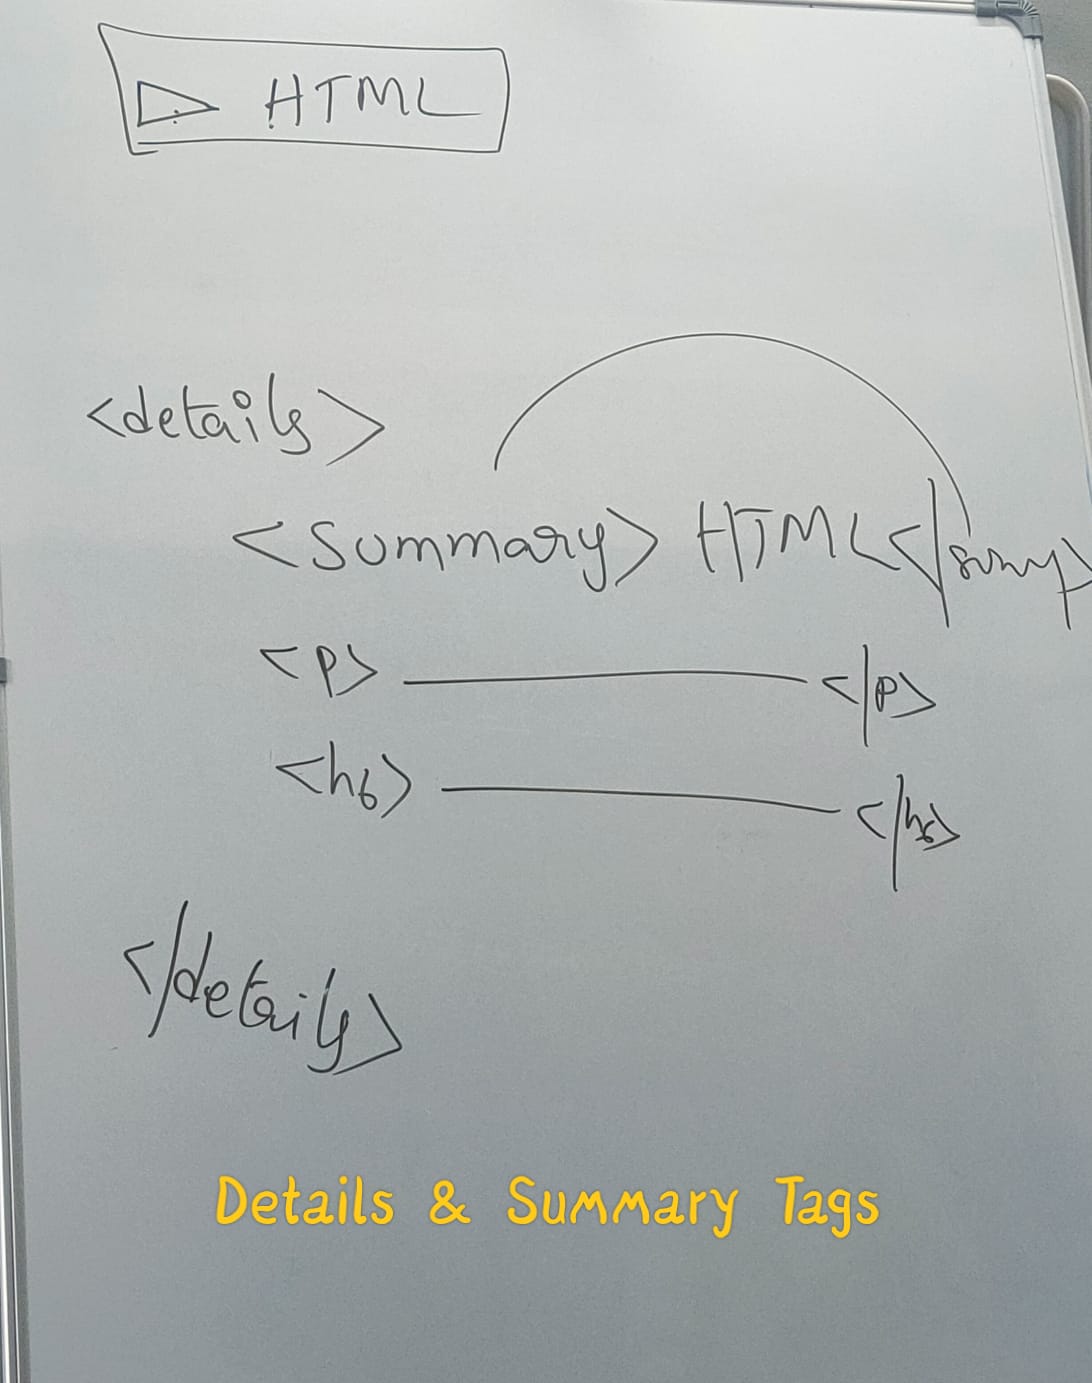 HTML
<details>
<summary> HTML </sumy>
<p> </p>
<h6> </h6>
</details>
Details & Summary Tags